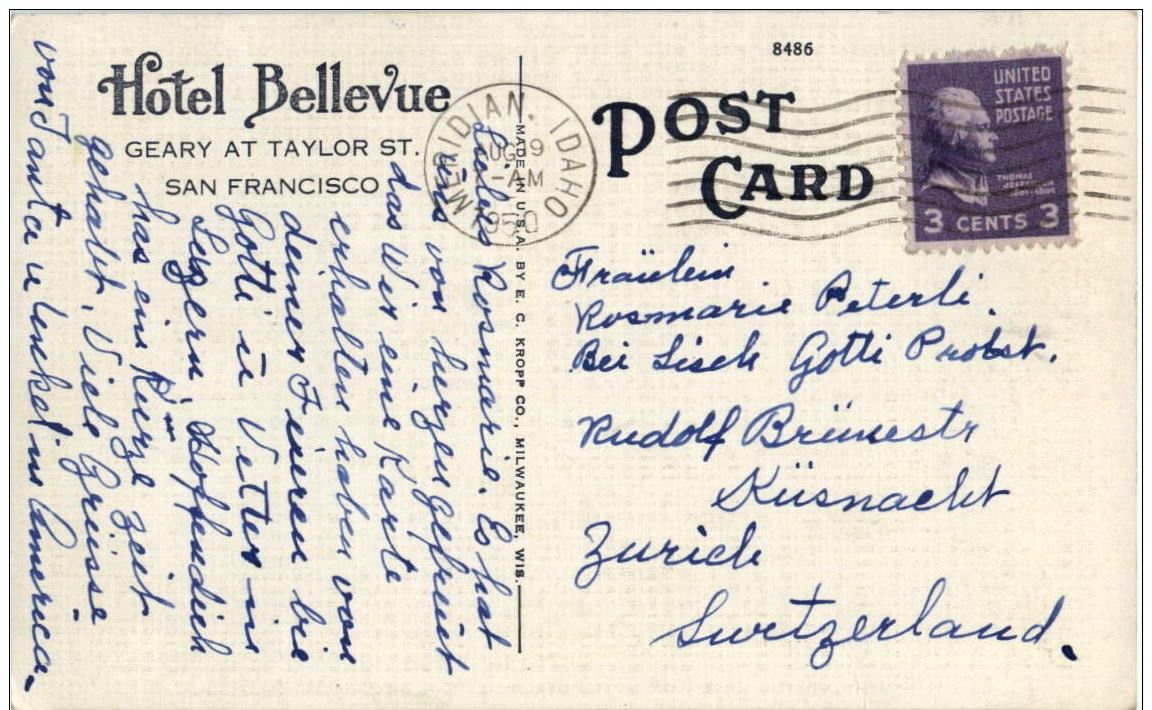 8486
Hotel Bellevue
GEARY AT TAYLOR ST.
SAN FRANCISCO
POST
CARD
UNITED
STATES
POSTAGE
THOMAS
JEFFERSON
3 CENTS 3
MERIDIAN, IDAHO
AUG 9
-AM
1950
MADE IN U.S.A. BY E. C. KROPP CO., MILWAUKEE, WIS.
Liebes Rosmarie. Es hat
uns von herzen gefreut
das Wir eine Karte
erhalten haben von
deinen Fineren bie
Gotti u Vetter in
Luzern, Hofendich
has ein Kurze Zeit
gehabt, Viele Grüsse
von Tanta u Unckel in America.
Fraülein
Rosmarie Peterli
Bei Lisek Gotti Probst.
Rudolf Brünestr
Küsnacht
Zurich
Switzerland.